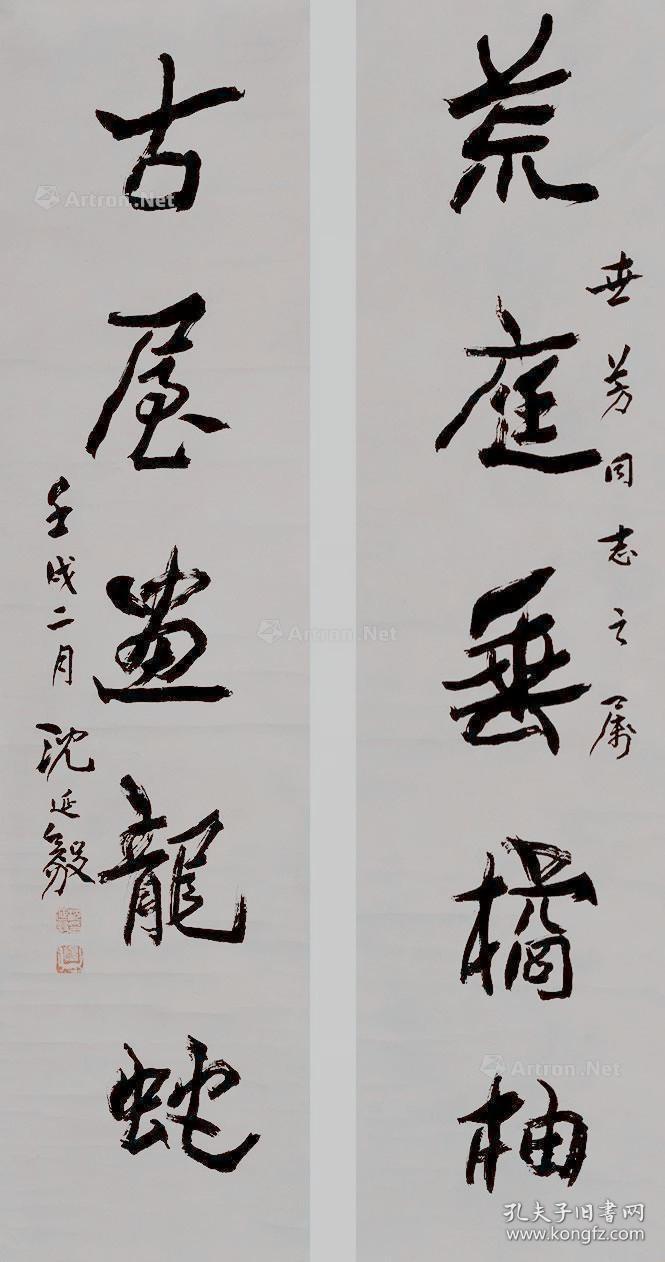 荒庭垂橘柚
世芳同志之属
古屋画龍蛇
壬戌二月
沈延毅
Artron.Net
Artron.Net
Artron.Net
孔夫子旧書网
www.kongfz.com